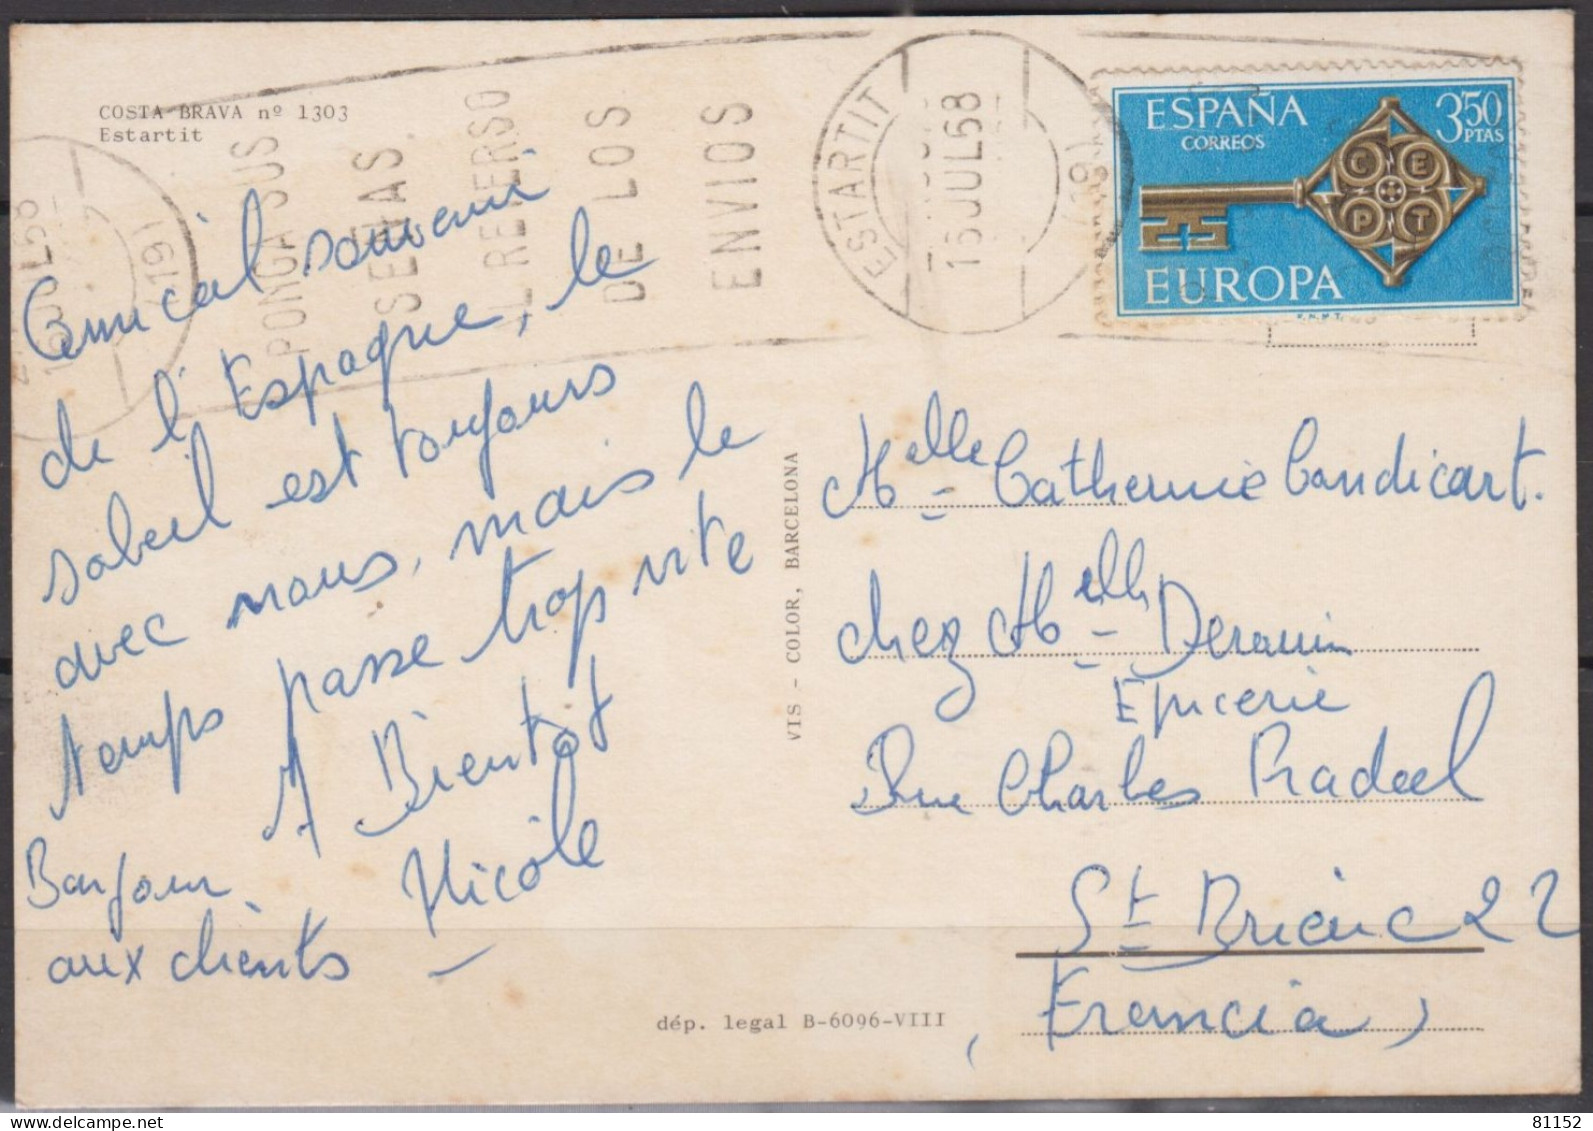 COSTA BRAVA nº 1303
Estartit
PONGA SUS
SEÑAS
AL REVERSO
DE LOS
ENVIOS
ESTARTIT
16 JUL 68
(19)
ESPAÑA
CORREOS
3,50
PTAS
CEPT
EUROPA
F.N.M.T.
Amical souvenir
de l'Espagne, le
soleil est toujours
avec nous, mais le
temps passe trop vite
A Bientôt
Nicole
Bonjour
aux clients
VIS - COLOR, BARCELONA
Melle Catherine Candicart.
chez Melle Derouin
Epicerie
Rue Charles Pradal
St Brieuc 22
(Francia)
dép. legal B-6096-VIII
81152